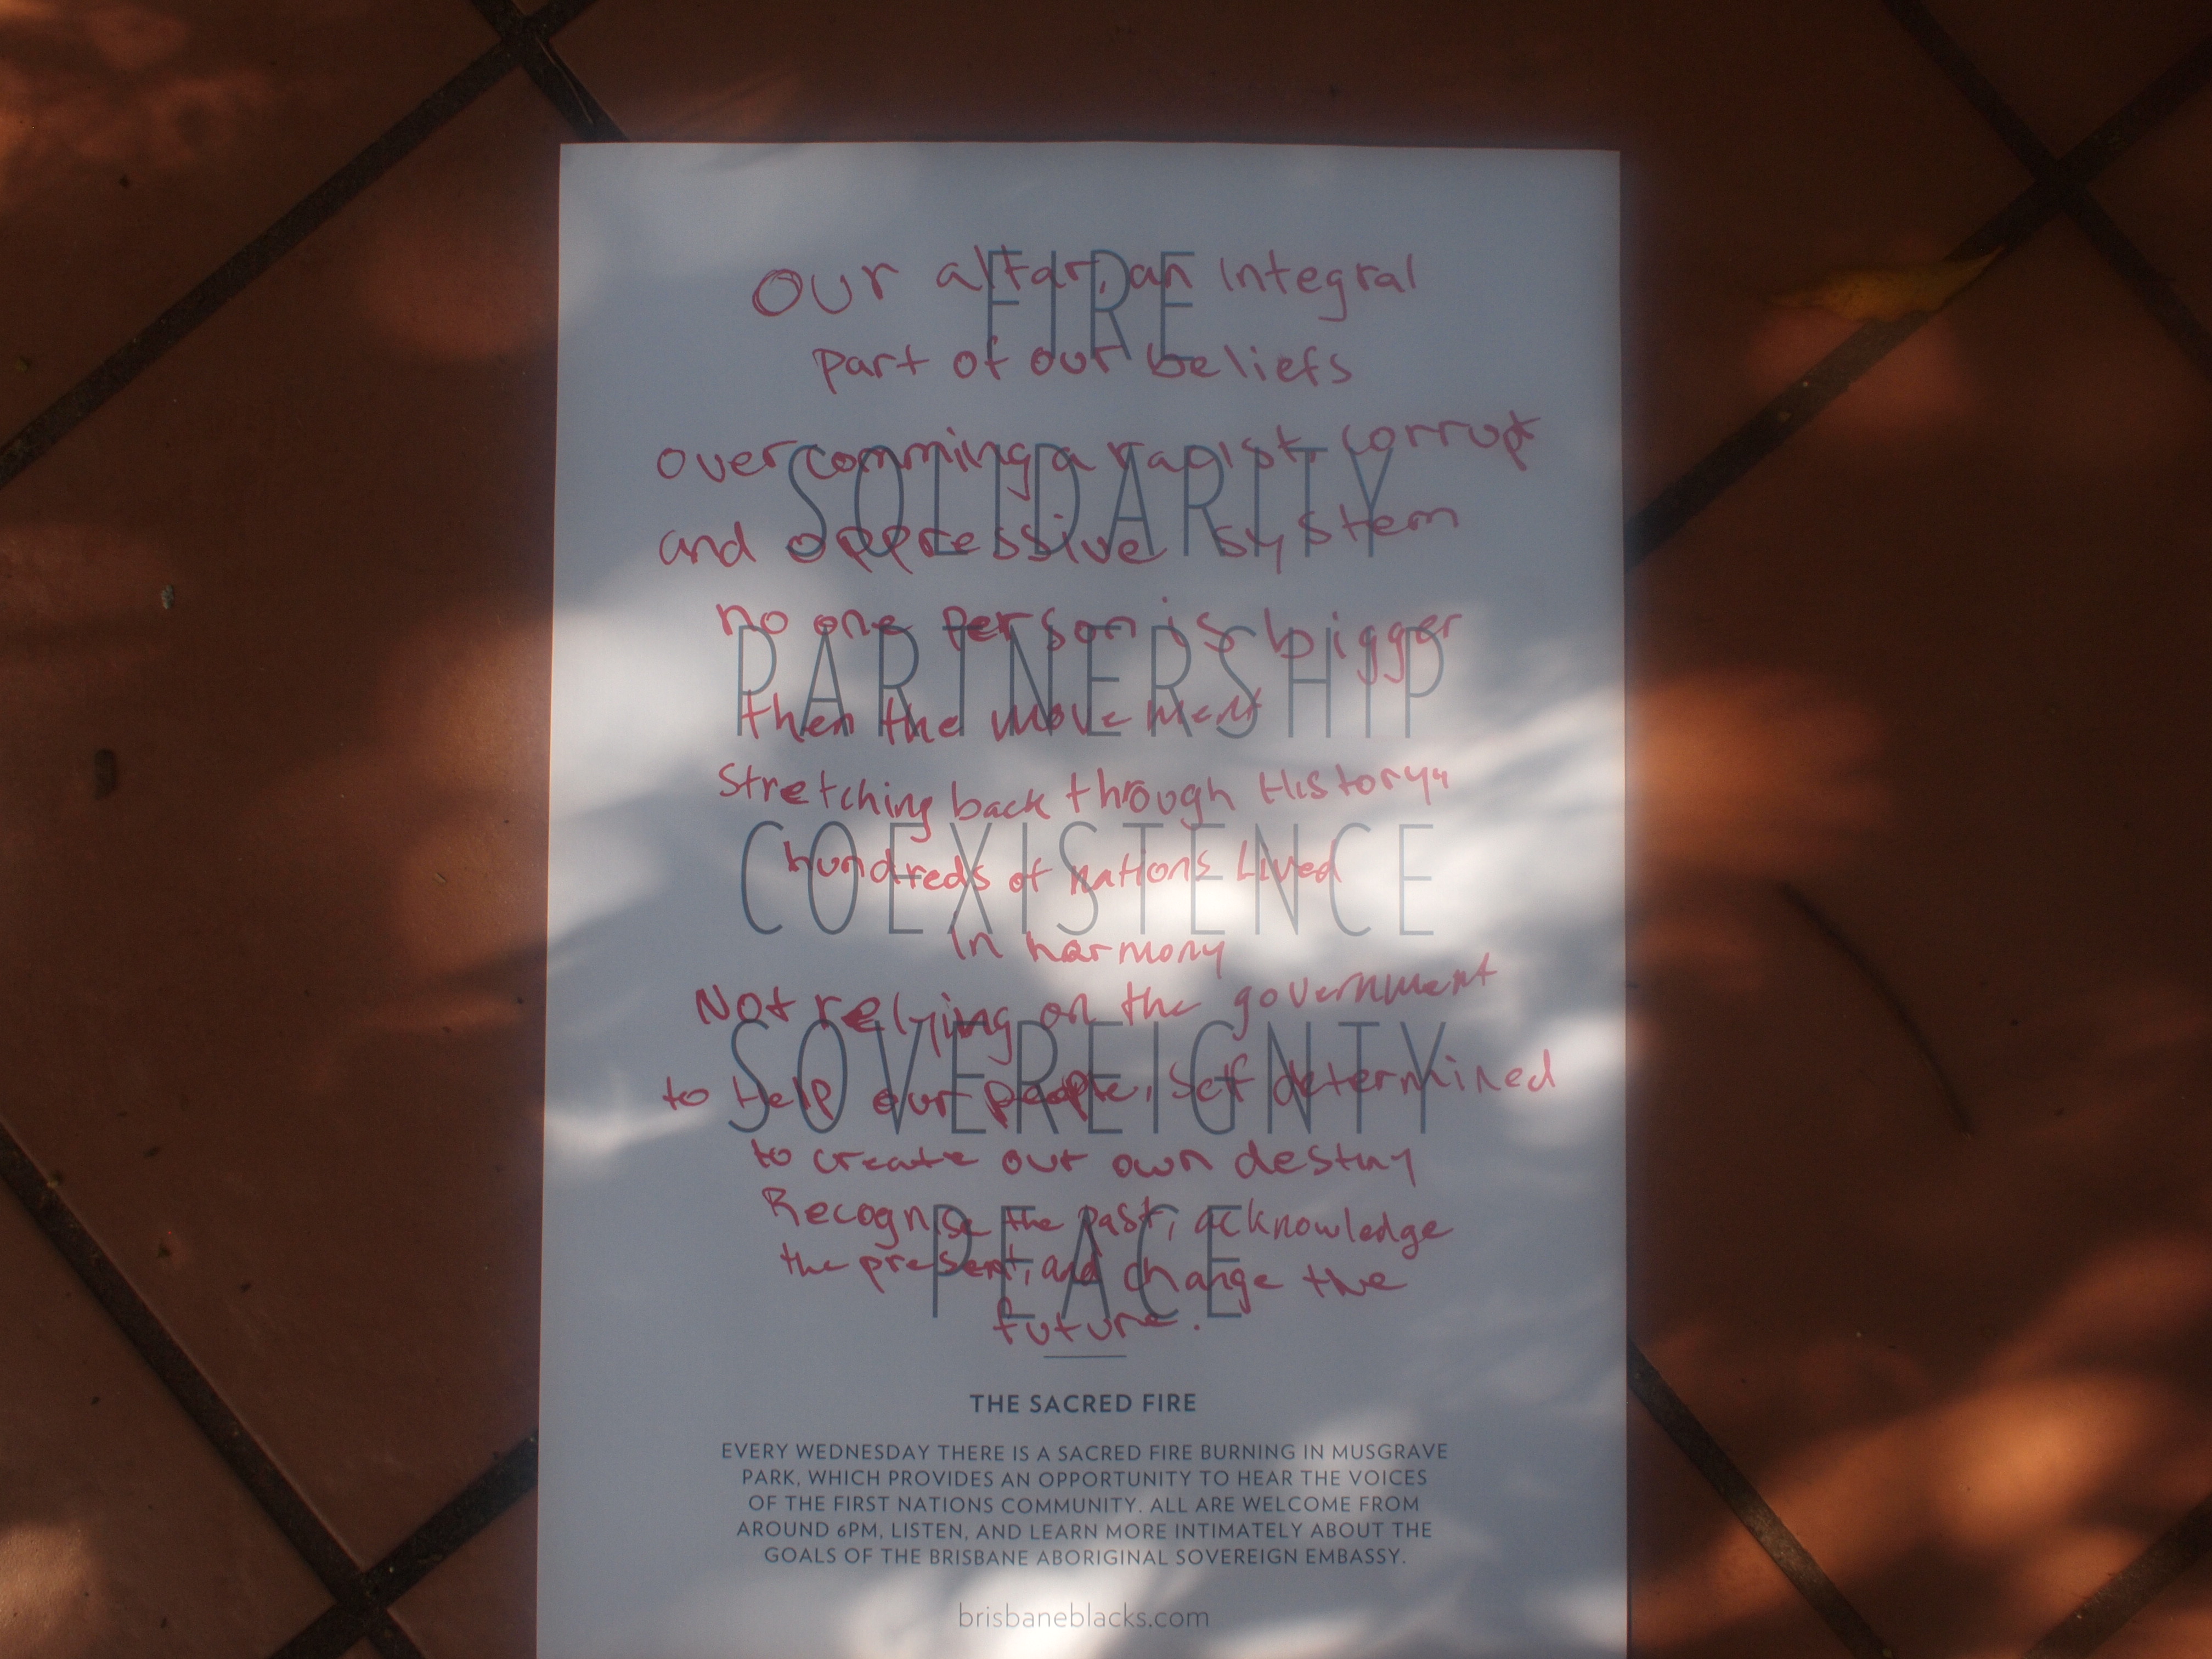 Our altar, an Integral
FIRE
part of our beliefs
overcomming a racist, corrupt
SOLIDARITY
and oppressive system
no one person is bigger
PARTNERSHIP
then the movement
Stretching back through History,
COEXISTENCE
hundreds of nations Lived
In harmony
Not relying on the government
SOVEREIGNTY
to Help our people, self determined
to create our own destiny
Recognise the past, acknowledge
PEACE
the present, and change the
future.
THE SACRED FIRE
EVERY WEDNESDAY THERE IS A SACRED FIRE BURNING IN MUSGRAVE
PARK, WHICH PROVIDES AN OPPORTUNITY TO HEAR THE VOICES
OF THE FIRST NATIONS COMMUNITY. ALL ARE WELCOME FROM
AROUND 6PM, LISTEN, AND LEARN MORE INTIMATELY ABOUT THE
GOALS OF THE BRISBANE ABORIGINAL SOVEREIGN EMBASSY.
brisbaneblacks.com